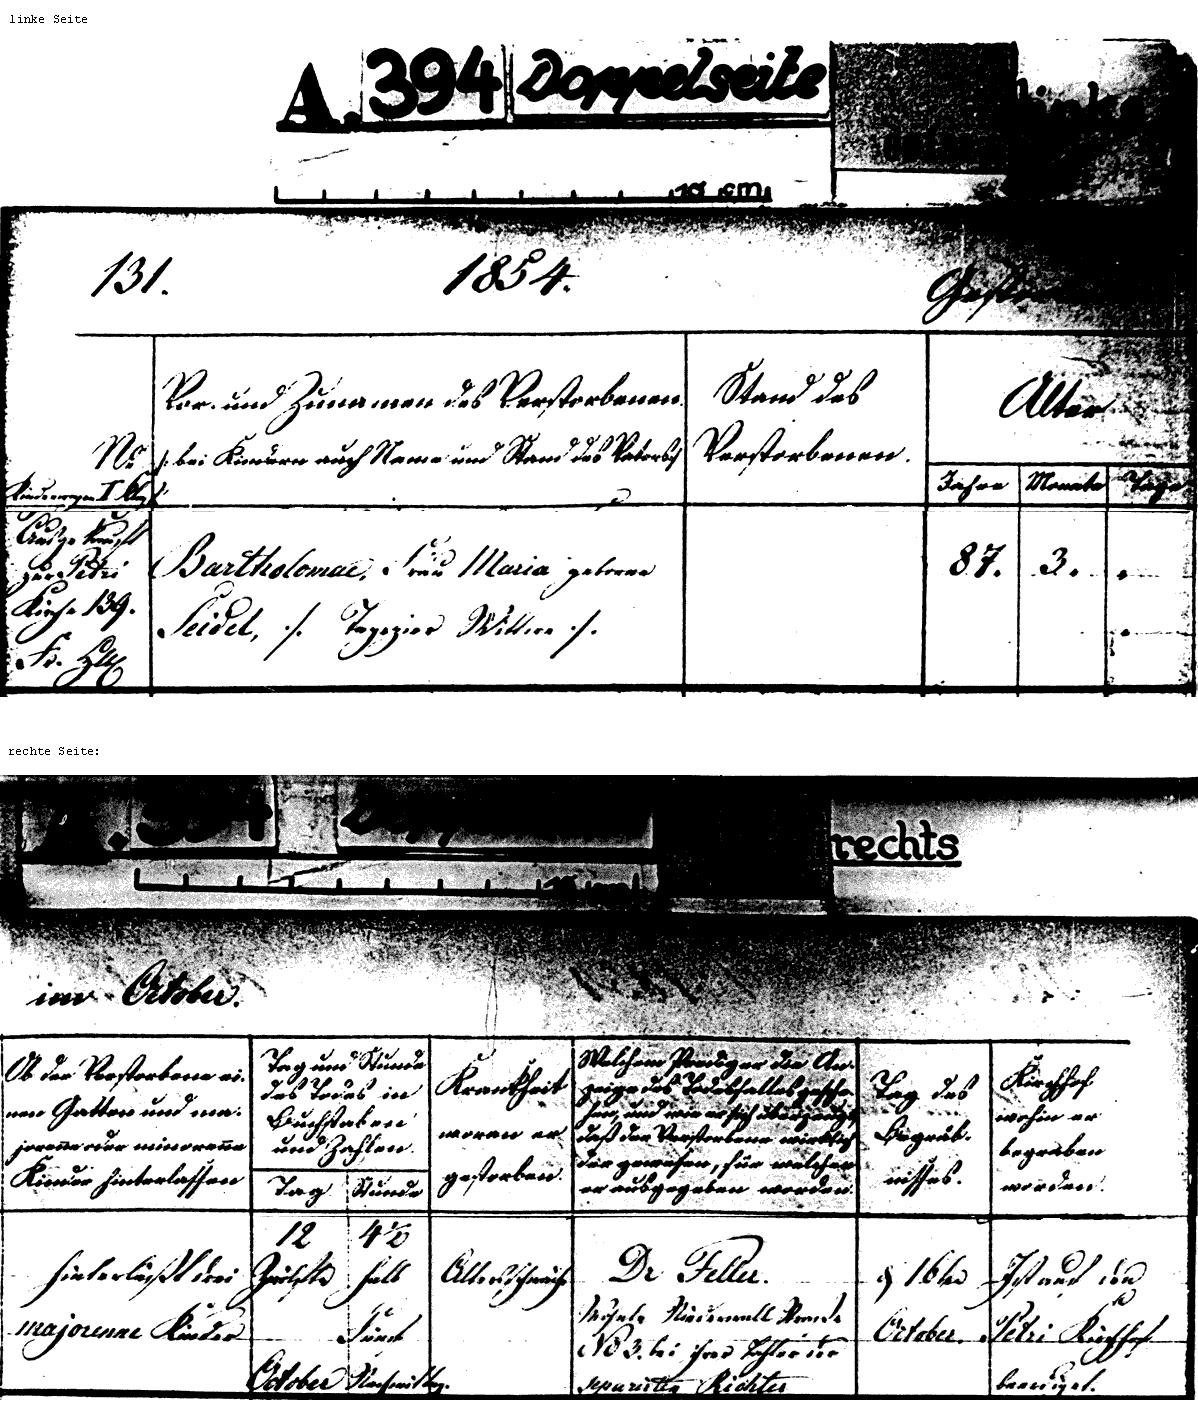 linke Seite
A. 394 Doppelseite links
10 cm
131. 1854. Gestor
Vor- und Zunamen des Verstorbenen. Stand des Alter
No /: bei Kindern auch Name und Stand des Vaters :/ Verstorbenen.
Kinderwagen II Jahre Monate Tage
zur Petri Bartholomae, Frau Maria geborne 87. 3. "
Kirche 139. Seidel, /. Tapezier Wittwe ./. "
Fr.
rechte Seite:
rechts
im October.
Ob der Verstorbene ei-
nen Gatten und ma-
jorenne oder minorenne
Kinder hinterlassen
Tag und Stunde
des Todes in
Buchstaben
und Zahlen.
Tag Stunde
Krankheit
woran er
gestorben.
Welchem Prediger die An-
zeige des Todesfalles gesche-
hen, und wie er sich überzeugt,
daß der Verstorbene wirklich
der gewesen, für welchen
er ausgegeben worden.
Tag des
Begräb-
nisses.
Kirchhof
wohin er
begraben
worden.
12 4½
hinterläßt drei Zwölfte halb Altersschwäche Dr Feller. d 16ten Ist auf dem
majorenne Kinder Fünf Niederwall Straße October. Petri Kirchhof
No 3. bei ihrer Tochter der
October Nachmittag. separirten Richter beerdigt.